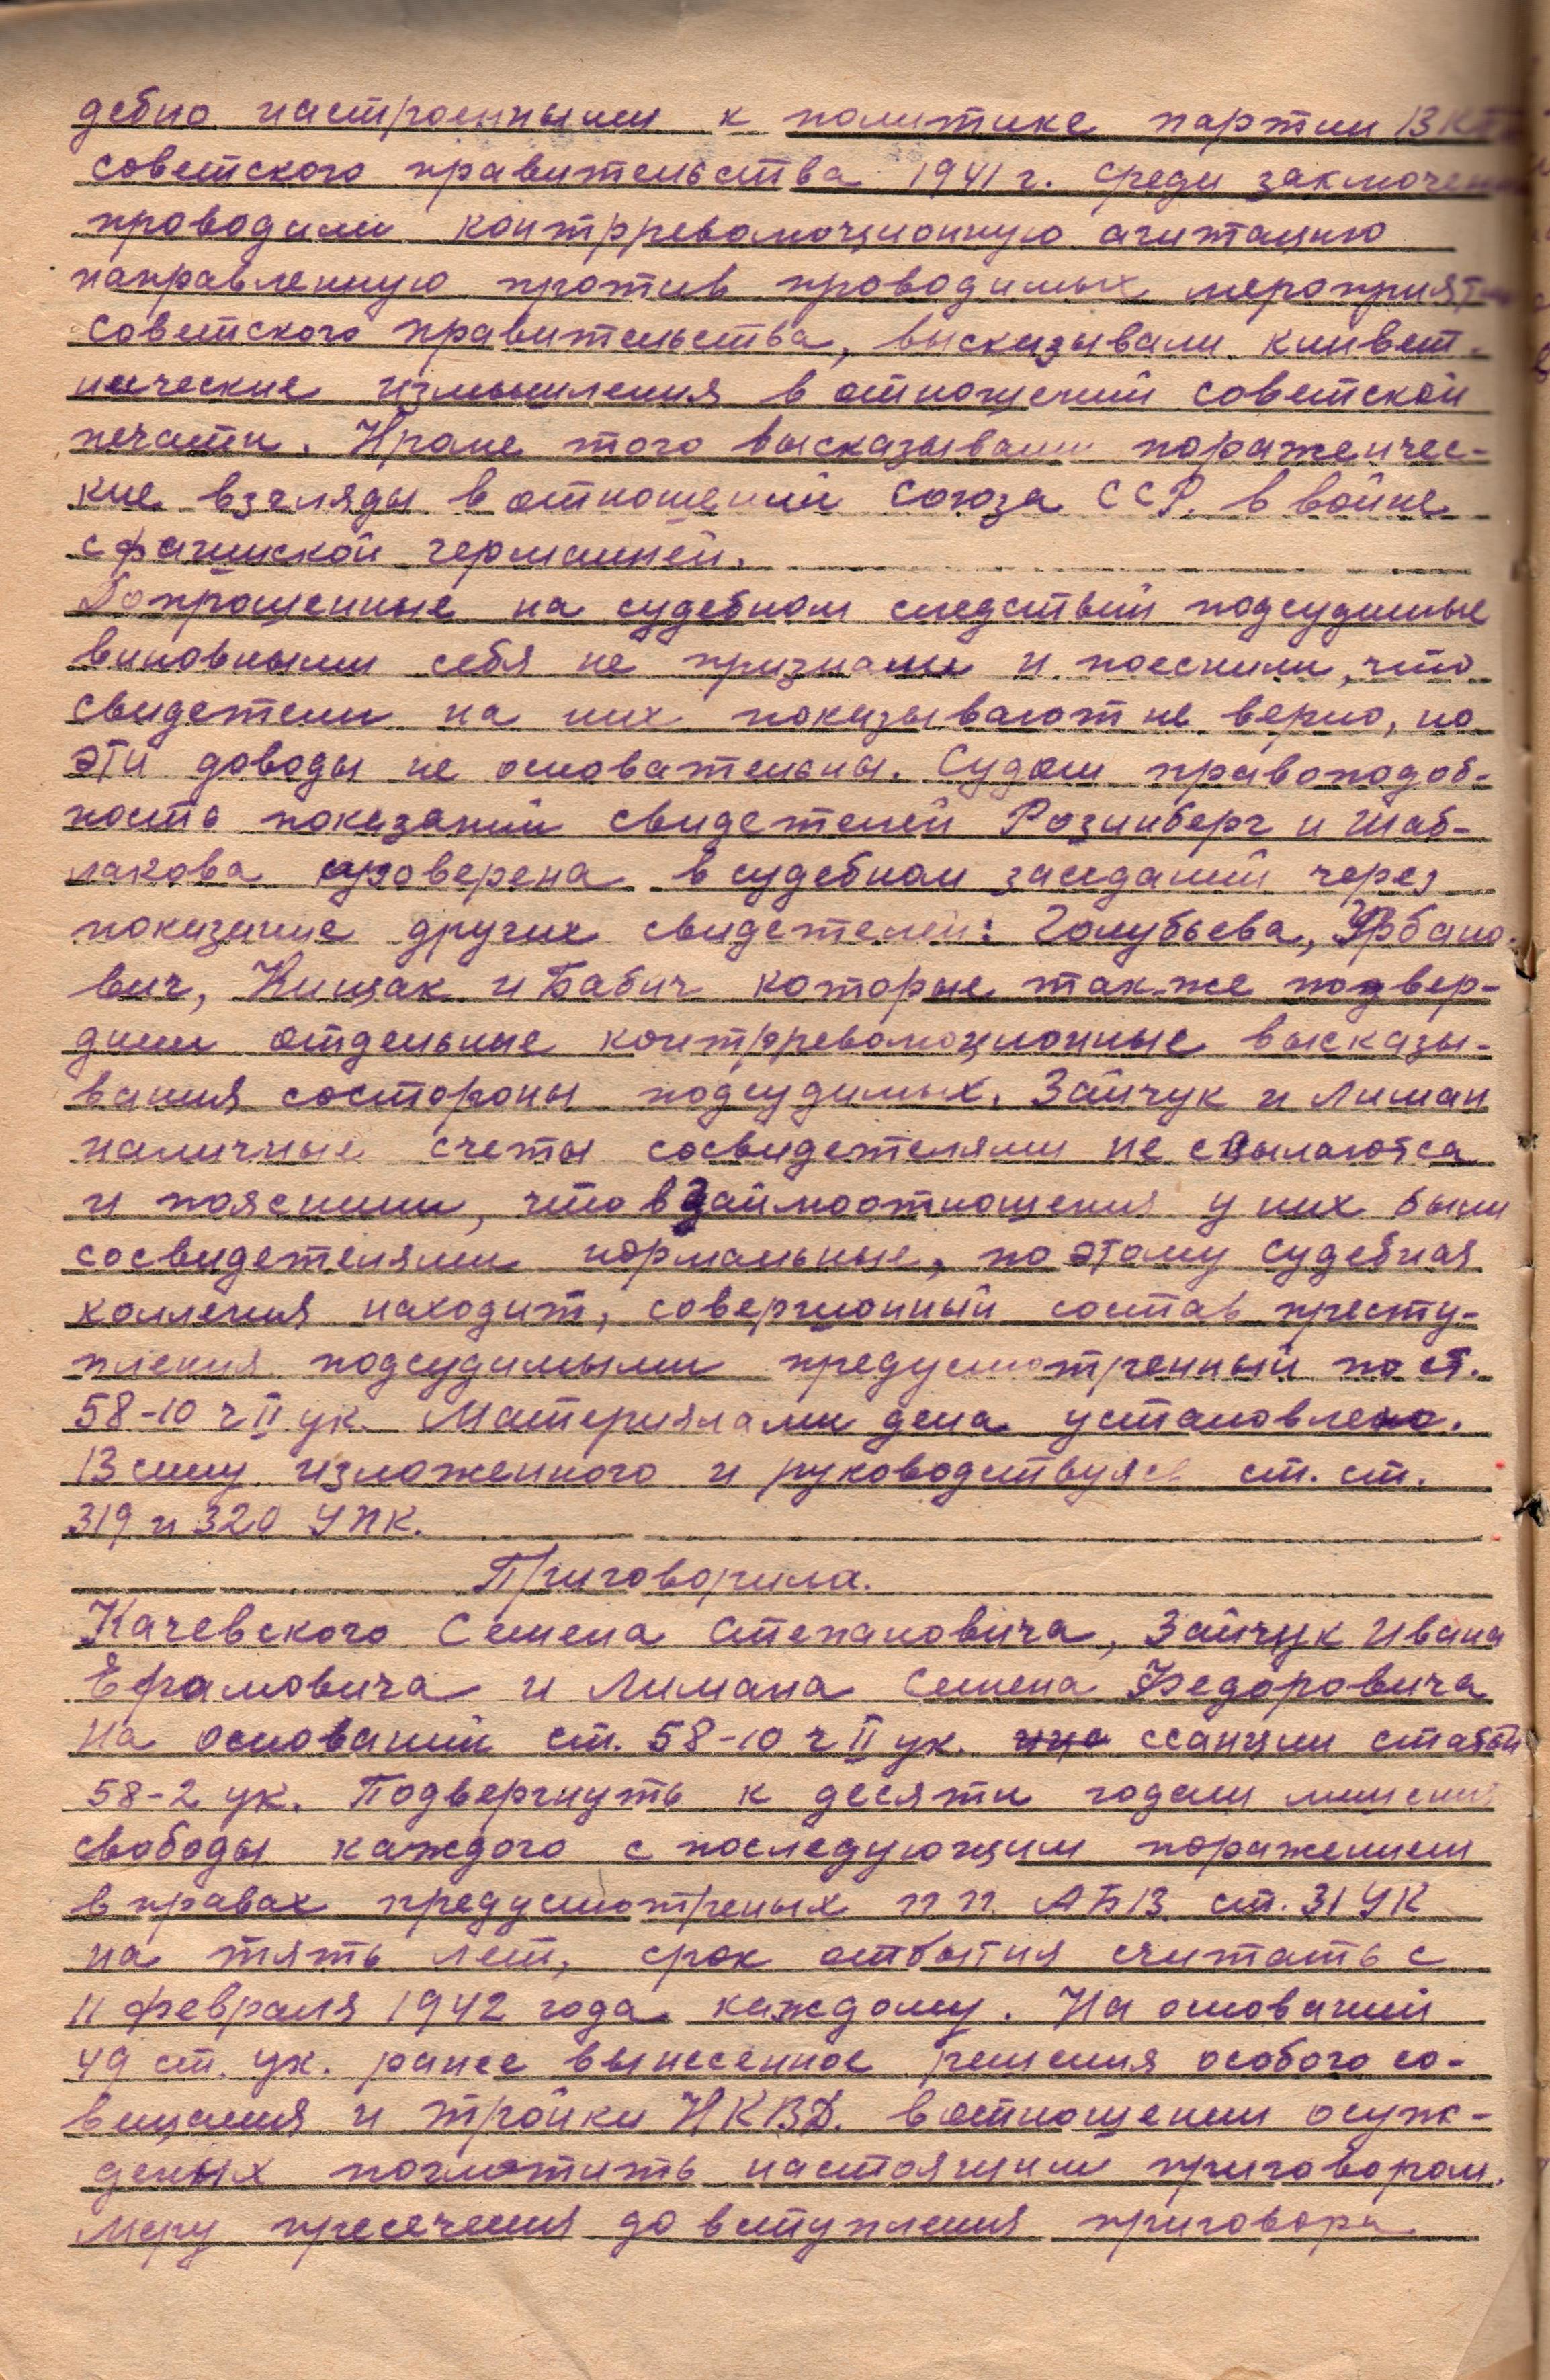 дебно настроенными к политике партии ВКП
советского правительства 1941 г. среди заключен
проводили контрреволюционную агитацию
направленную против проводимых мероприяти
советского правительства, высказывали кливет-
нические измышления в отношений советской
печати. Кроме того высказывали пораженчес-
кие взгляды в отношений Союза ССР. в войне
с фашиской германией.
Допрошенные на судебном следствий подсудимые
виновными себя не признали и поеснили, что
свидетели на них показывают не верно, но
эти доводы не основательны. Судом правоподоб-
ность показаний свидетелей Розинберг и Шаб-
лакова проверена в судебном заседаний через
показание других свидетелей: Голубьева, Урбано-
вич, Кищак и Бабич которые так-же подвер-
дили отдельные контрреволюционные высказы-
вания состороны подсудимых. Зайчук и Лиман
наличные счеты сосвидетелями не ссылаются
и пояснили, что взаймоотношения у них были
сосвидетелями нормальные, по этому судебная
коллегия находит, совершонный состав престу-
пления подсудимыми предусмотренный по ст.
58-10 ч II ук. Материялами дела установлено.
В силу изложенного и руководствуясь ст. ст.
319 и 320 УПК.
Приговорила.
Качевского Семена Степановича, Зайчук Ивана
Ефрамовича и Лимана Семена Федоровича
на оснований ст. 58-10 ч II ук. ссанкции статьи
58-2 ук. Подвергнуть к десяти годам лишения
свободы каждого с последующим поражением
в правах предусмотреных п п. АБВ ст. 31 УК
на пять лет, срок отбытия считать с
11 февраля 1942 года каждому. На оснований
49 ст. ук. ранее вынесенное решения особого со-
вищания и тройки НКВД. вотношении осуж-
деных поглотить настоящим приговором.
Меру пресечения до вступления приговора